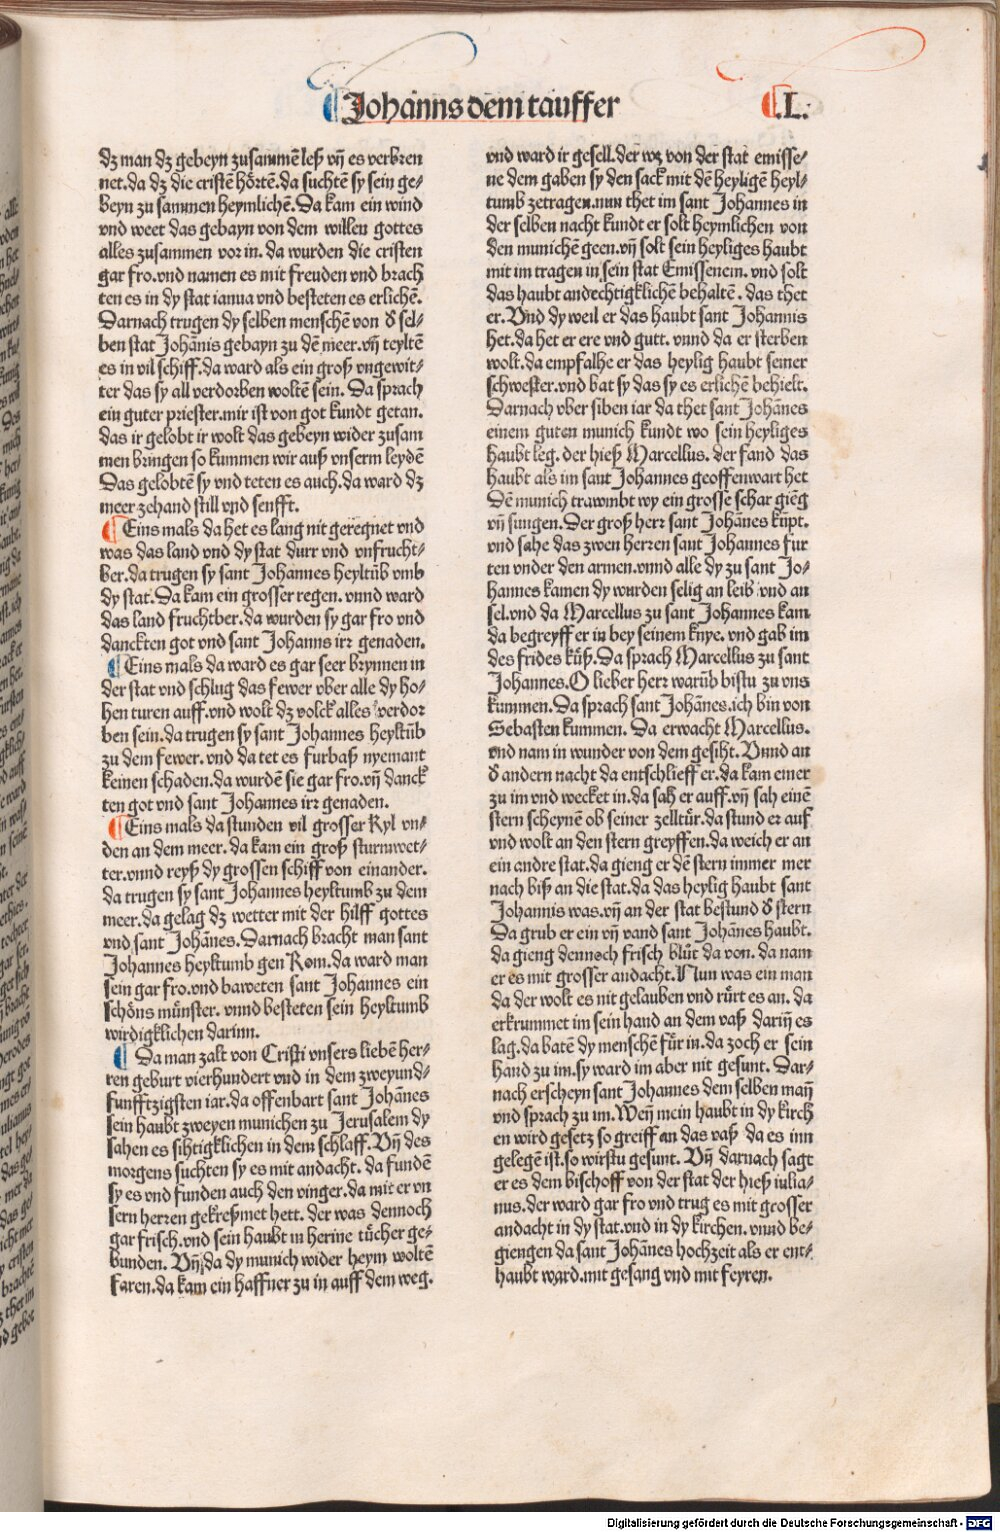 Johanns dem tauffer
.L.
dz man dz gebeyn zusammē leß vn̄ es verbren
net.da dz die cristē hörtē.da suchtē sy sein ge⸗
beyn zu sammen heymlichē.Da kam ein wind
vnd weet das gebayn von dem willen gottes
alles zusammen vor in. da wurden die cristen
gar fro.vnd namen es mit freuden vnd brach
ten es in dy stat ianua vnd besteten es erlichē.
Darnach trugen dy selben menschē von d̕ sel⸗
ben stat Johānis gebayn zu dē meer.vn̄ teyltē
es in vil schiff.da ward als ein groß vngewit⸗
ter das sy all verdorben woltē sein. Da sprach
ein guter priester.mir ist von got kundt getan.
das ir gelobt ir wolt das gebeyn wider zusam
men bringen so kummen wir auß vnserm leydē
Das gelobtē sy vnd teten es auch.da ward dz
meer zehand still vnd senfft.
Eins mals da het es lang nit geregnet vnd
was das land vnd dy stat durr vnd vnfrucht⸗
ber.da trugen sy sant Johannes heyltūb vmb
dy stat.Da kam ein grosser regen. vnnd ward
das land fruchtber.da wurden sy gar fro vnd
danckten got vnd sant Johanns irr genaden.
Eins mals da ward es gar seer brynnen in
der stat vnd schlug das fewer vber alle dy ho⸗
hen turen auff.vnd wolt dz volck alles verdor
ben sein.da trugen sy sant Johannes heyltūb
zu dem fewer. vnd da tet es furbaß nyemant
keinen schaden.da wurdē sie gar fro.vn̄ danck
ten got vnd sant Johannes irr genaden.
Eins mals da stunden vil grosser Kyl vn⸗
den an dem meer. da kam ein groß sturmwet⸗
ter.vnnd reyß dy grossen schiff von einander.
da trugen sy sant Johannes heyltumb zu dem
meer.da gelag dz wetter mit der hilff gottes
vnd sant Johānes.Darnach bracht man sant
Johannes heyltumb gen Rom.da ward man
sein gar fro.vnd baweten sant Johannes ein
schöns münster. vnnd besteten sein heyltumb
wirdigklichen darinn.
Da man zalt von Cristi vnsers liebē her⸗
ren geburt vierhundert vnd in dem zweyund⸗
funfftzigsten iar.da offenbart sant Johānes
sein haubt zweyen munichen zu Jerusalem dy
sahen es sihtigklichen in dem schlaff. Vn̄ des
morgens suchten sy es mit andacht. da fundē
sy es vnd funden auch den vinger.da mit er vn
sern herren gekreßmet hett. der was dennoch
gar frisch.vnd sein haubt in herine tücher ge⸗
bunden. Vn̄ da dy munich wider heym woltē
faren.da kam ein haffner zu in auff dem weg.
vnd ward ir gesell.der wz von der stat emisse⸗
ne dem gaben sy den sack mit dē heyligē heyl⸗
tumb zetragen.nun thet im sant Johannes in
der selben nacht kundt er solt heymlichen von
den munichē geen.vn̄ solt sein heyliges haubt
mit im tragen in sein stat Emissenem. vnd solt
das haubt andechtigklichē behaltē. das thet
er.Vnd dy weil er das haubt sant Johannis
het.da het er ere vnd gutt. vnnd da er sterben
wolt.da empfalhe er das heylig haubt seiner
schwester.vnd bat sy das sy es erlichē behielt.
Darnach vber siben iar da thet sant Johānes
einem guten munich kundt wo sein heyliges
haubt leg. der hieß Marcellus. der fand das
haubt als im sant Johannes geoffenwart het
Dē munich trawmbt wy ein grosse schar gieg
vn̄ sungen.Der groß herr sant Johānes kūpt.
vnd sahe das zwen herren sant Johannes fur
ten vnder den armen.vnnd alle dy zu sant Jo⸗
hannes kamen dy wurden selig an leib vnd an
sel.vnd da Marcellus zu sant Johannes kam
da begreyff er in bey seinem knye. vnd gab im
des frides kūß.Da sprach Marcellus zu sant
Johannes.O lieber herr warūb bistu zu vns
kummen.Da sprach sant Johānes.ich bin von
Sebasten kummen. Da erwacht Marcellus.
vnd nam in wunder von dem gesiht. Vnnd an
d̕ andern nacht da entschlieff er.da kam einer
zu im vnd wecket in.da sah er auff.vn̄ sah einē
stern scheynē ob seiner zelltür.da stund er auf
vnd wolt an den stern greyffen.da weich er an
ein andre stat.da gieng er dē stern immer mer
nach biß an die stat.da das heylig haubt sant
Johannis was.vn̄ an der stat bestund d̕ stern
Da grub er ein vn̄ vand sant Johānes haubt.
da gieng dennoch frisch blūt da von. da nam
er es mit grosser andacht.Nun was ein man
da der wolt es nit gelauben vnd rürt es an. da
erkrummet im sein hand an dem vaß darin̄ es
lag.da batē dy menschē für in.da zoch er sein
hand zu im.sy ward im aber nit gesunt. Dar⸗
nach erscheyn sant Johannes dem selben man̄
vnd sprach zu im.Wen̄ mein haubt in dy kirch
en wird gesetz so greiff an das vaß da es inn
gelegē ist.so wirstu gesunt. Vn̄ darnach sagt
er es dem bischoff von der stat der hieß iulia⸗
nus.der ward gar fro vnd trug es mit grosser
andacht in dy stat.vnd in dy kirchen. vnnd be⸗
giengen da sant Johānes hochzeit als er ent⸗
haubt ward.mit gesang vnd mit feyren.
Digitalisierung gefördert durch die Deutsche Forschungsgemeinschaft - DFG